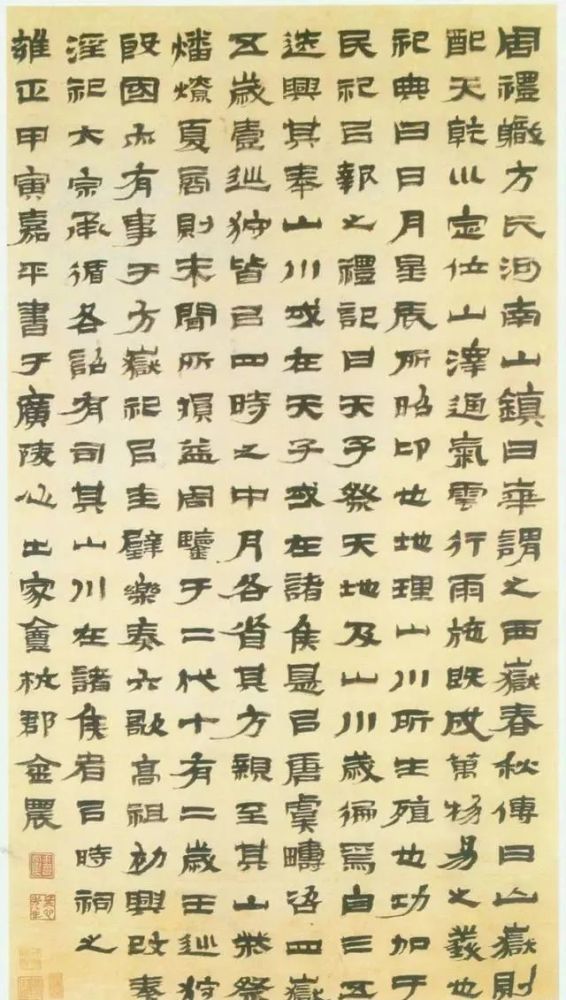 周禮職方氏河南山鎮曰華謂之西嶽春秋傳曰山嶽則
配天乾川定位山澤通氣雲行雨施既成萬物易之義也
祀典曰日月星辰所昭卬也地理山川所生殖也功加于
民祀㠯報之禮記曰天子祭天地及山川歲徧焉自三五
迭興其奉山川或在天子或在諸侯是㠯唐虞疇咨四嶽
五歲壹巡狩皆㠯四時之中月各省其方親至其山柴祭
燔燎夏商則未聞所損益周鑒于二代十有二歲王巡狩
殷國亦有事于方嶽祀㠯圭璧樂奏六歌高祖初興改秦
淫祀太宗承循各詔有司其山川在諸侯者㠯時祠之
雍正甲寅嘉平書于廣陵心出家盦杭郡金農